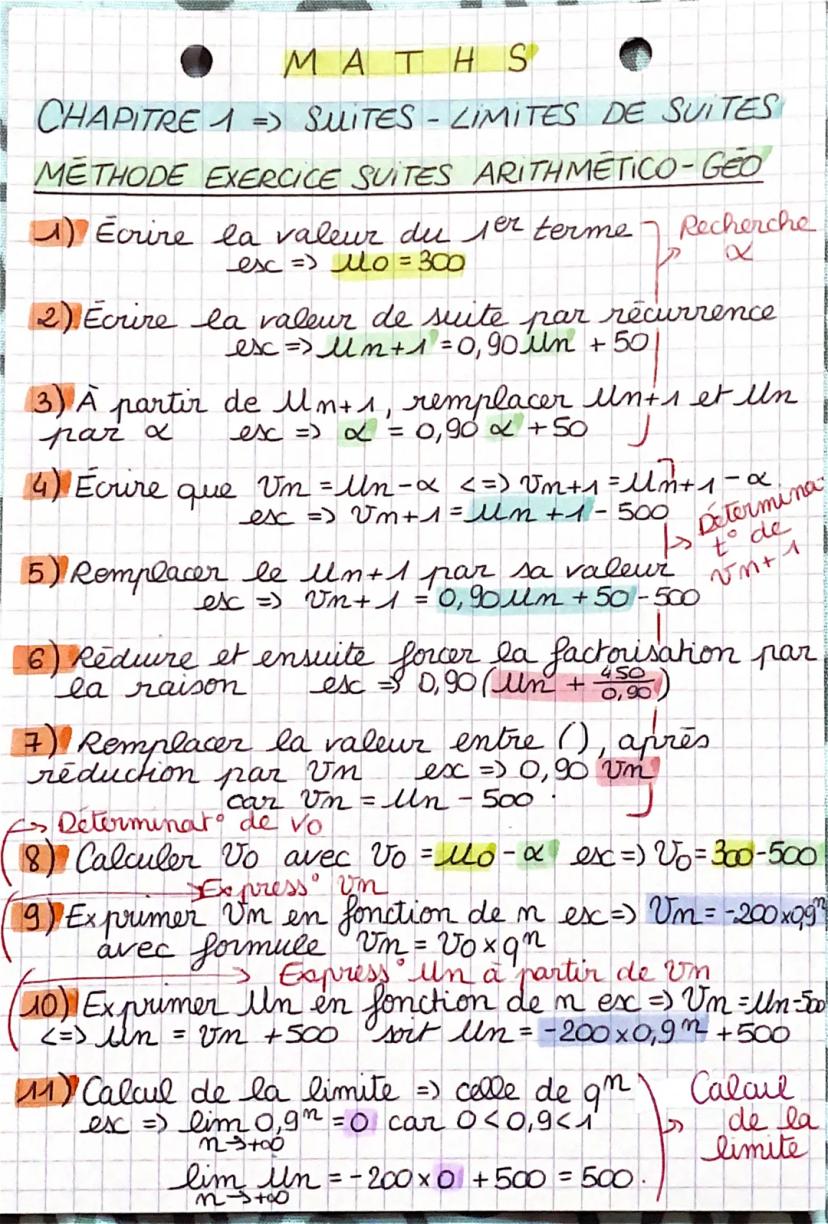 MATHS
CHAPITRE 1 => SUITES - LIMITES DE SUITES
MÉTHODE EXERCICE SUITES ARITHMÉTICO-GÉO
1) Écrire la valeur du 1er terme
esc => U0 = 300
Recherche
α
2) Écrire la valeur de suite par récurrence
esc => Un+1 = 0,90 Un + 50
3) À partir de Un+1, remplacer Un+1 et Un
par α esc => α = 0,90 α + 50
4) Écrire que Vn = Un-α <=> Vn+1 = Un+1 - α
esc => Vn+1 = Un+1 - 500
Détermina-
t° de
Vn+1
5) Remplacer le Un+1 par sa valeur
esc => Vn+1 = 0,90Un + 50 - 500
6) Réduire et ensuite forcer la factorisation par
la raison esc => 0,90 (Un + 450/0,90)
7) Remplacer la valeur entre (), après
réduction par Vn esc => 0,90 Vn
car Vn = Un - 500.
-> Déterminat° de V0
8) Calculer V0 avec V0 = U0 - α esc => V0 = 300-500
-> Express° Vn
9) Exprimer Vn en fonction de n esc => Vn = -200x0,9^n
avec formule Vn = V0 x q^n
-> Express° Un à partir de Vn
10) Exprimer Un en fonction de n esc => Vn = Un-500
<=> Un = Vn + 500 soit Un = -200 x 0,9^n + 500
11) Calcul de la limite => celle de q^n
esc => lim 0,9^n = 0 car 0 < 0,9 < 1
n->+∞
lim Un = -200 x 0 + 500 = 500.
n->+∞
Calcul
de la
limite